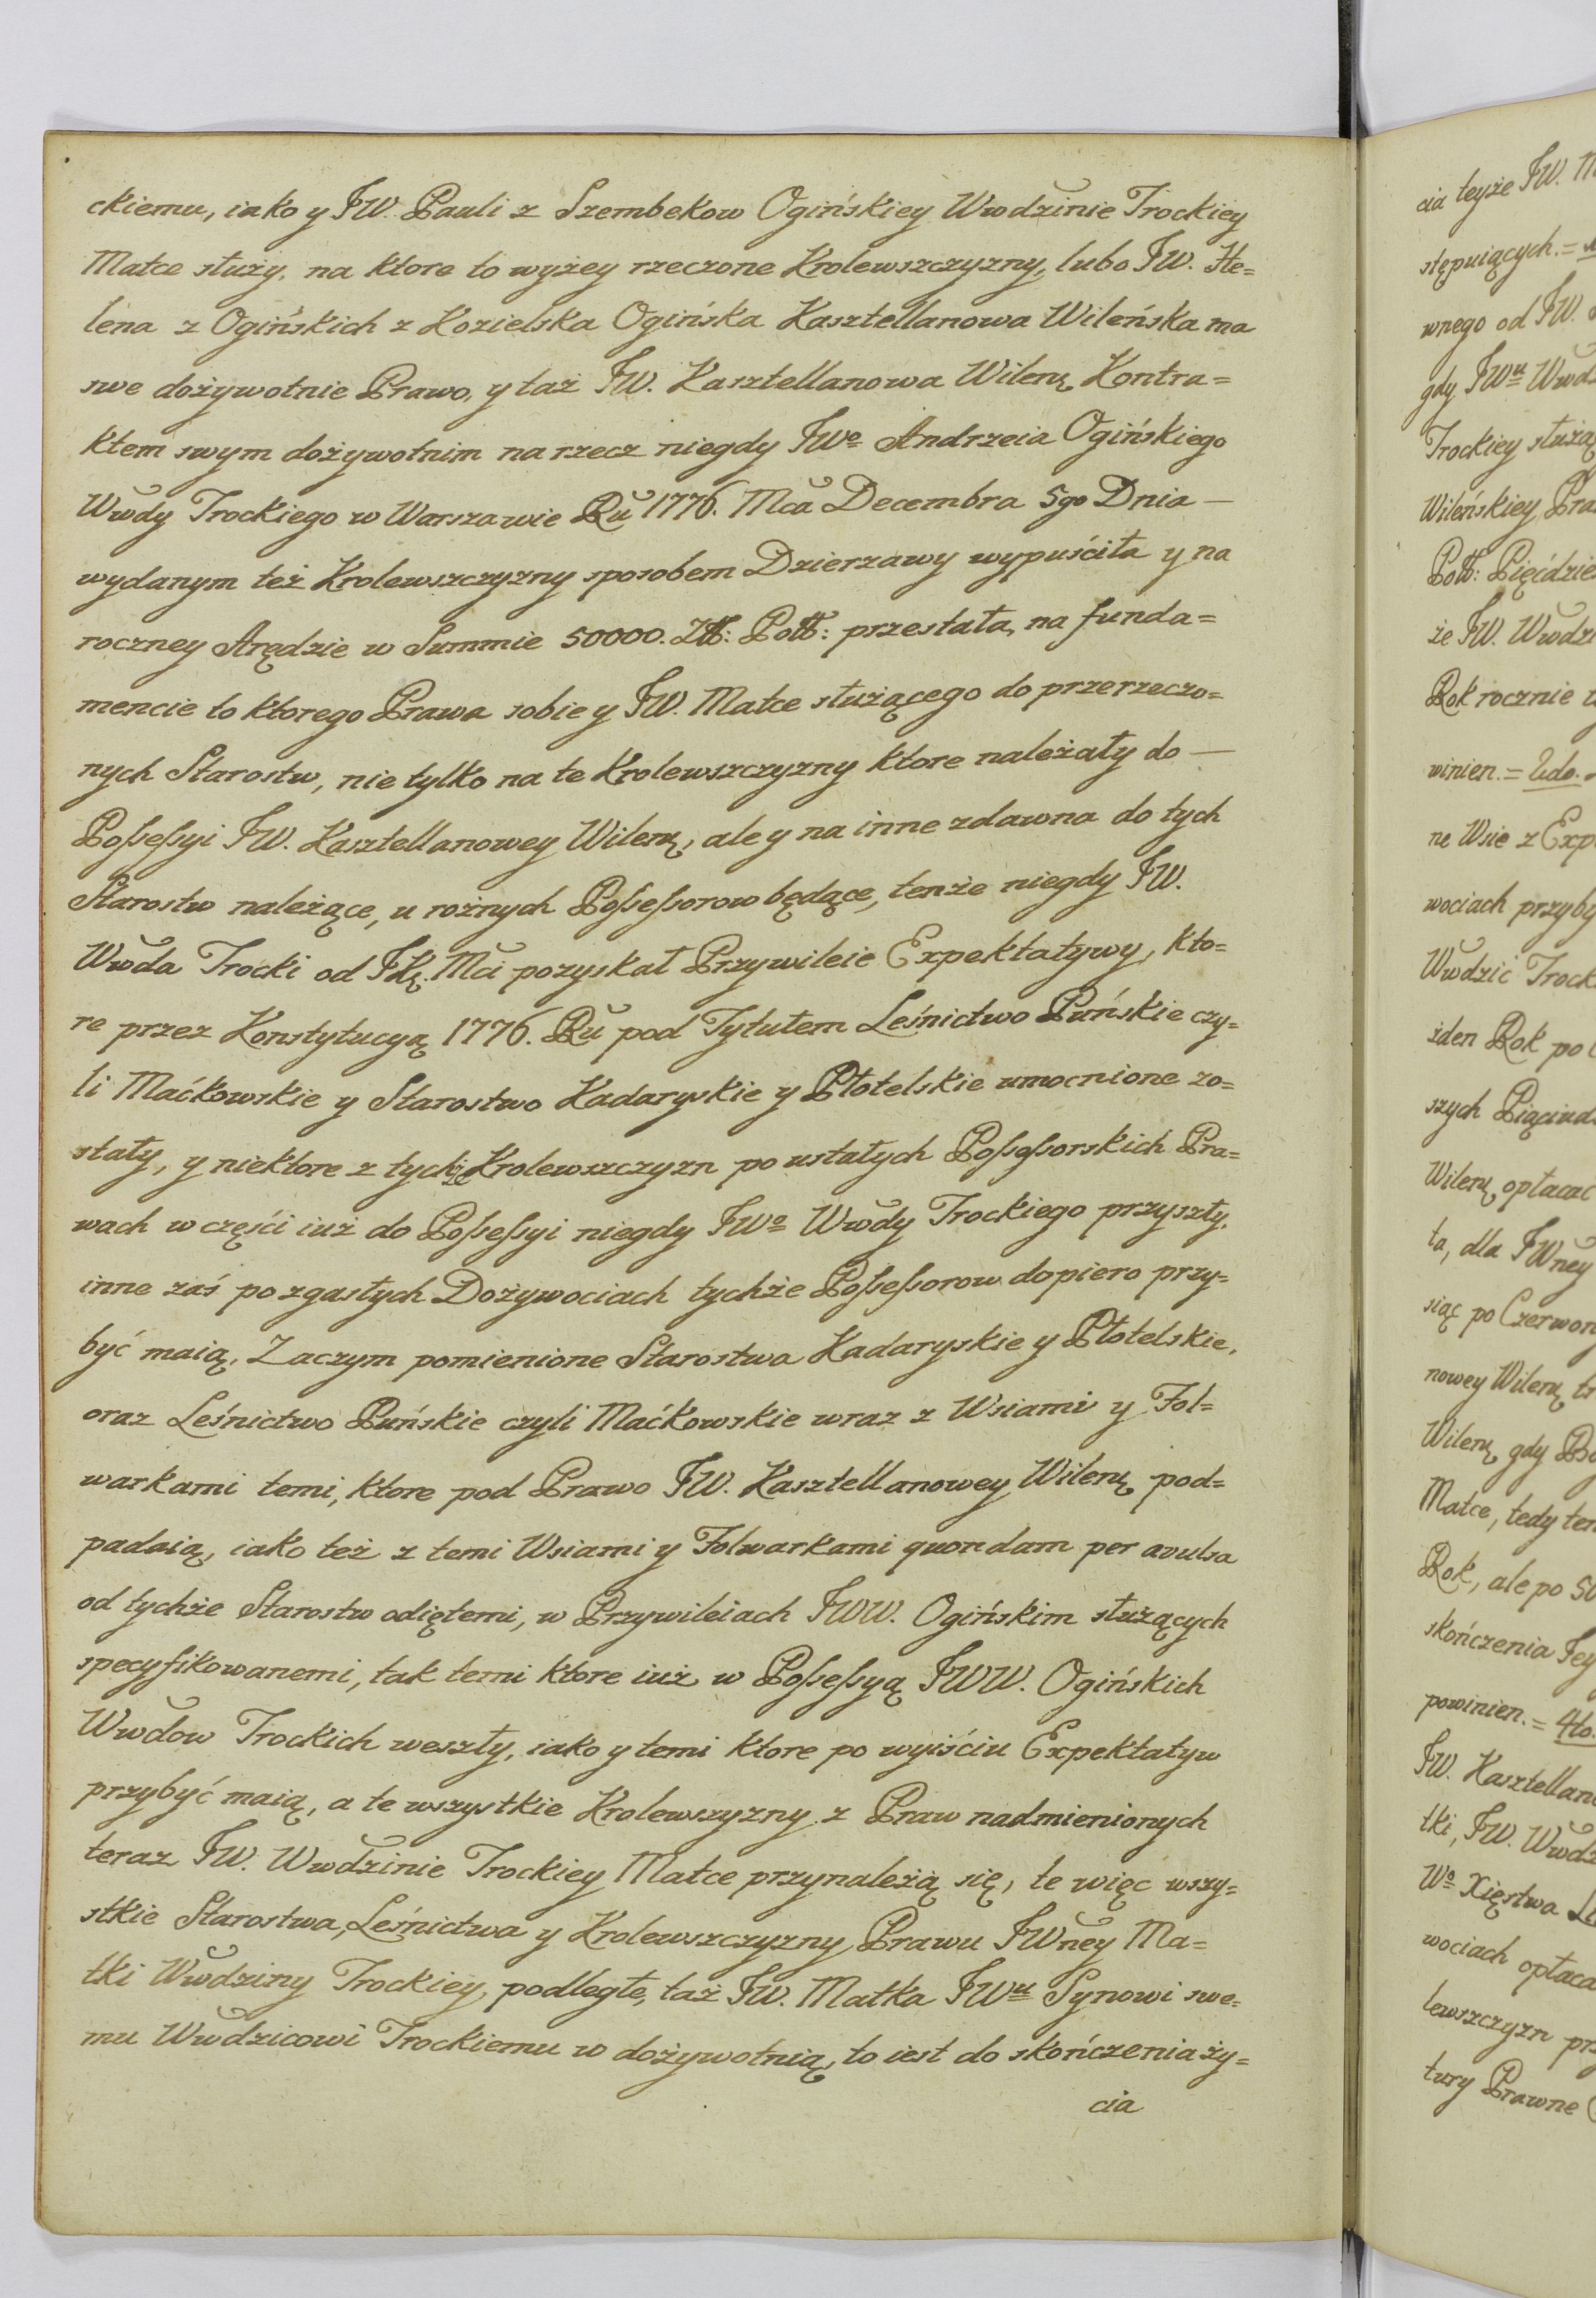 ckiemu, iako y JW. Pauli z Szembekow Ogińskiey Wwdzinie Trockiey
Matce służy, na ktore to wyżey rzeczone Krolewszczyzny, lubo JW. He=
lena z Ogińskich z Kozielska Ogińska Kasztellanowa Wileńska ma
swe dożywotnie Prawo, y taż JW. Kasztellanowa Wileńą Kontra=
ktem swym dożywotnim na rzecz niegdy JWo Andrzeia Ogińskiego
Wwdy Trockiego w Warszawie Ru 1776. Mca Decembra 5go Dnia —
wydanym też Krolewszczyzny sposobem Dzierzawy wypuściła y na
roczney Arędzie w Summie 50000. Złł: Poll: przestała, na funda=
mencie to ktorego Prawa sobie y JW. Matce służącego do przerzeczo=
nych Starostw, nie tylko na te Krolewszczyzny ktore należały do —
Possessyi JW. Kasztellanowey Wileńą, ale y na inne zdawna do tych
Starostw należące, u rożnych Possessorow będące, tenże niegdy JW.
Wwda Trocki od JKę. Mci pozyskał Przywileie Expektatywy, kto=
re przez Konstytucyą 1776. Ru pod Tytułem Leśnictwo Puńskie czy=
li Maćkowskie y Starostwo Kadaryskie y Płotelskie umocnione zo=
stały, y niektore z tychże Krolewszczyzn po ustałych Possessorskich Pra=
wach w częśći iuż do Possessyi niegdy JWo Wwdy Trockiego przyszły,
inne zaś po zgasłych Dożywociach tychże Possessorow dopiero przy=
być maią, Zaczym pomienione Starostwa Kadaryskie y Płotelskie,
oraz Leśnictwo Puńskie czyli Maćkowskie wraz z Wsiami y Fol=
warkami temi, ktore pod Prawo JW. Kasztellanowey Wileńą pod=
padaią, iako też z temi Wsiami y Folwarkami quondam per avulsa
od tychże Starostw odiętemi, w Przywileiach JWW. Ogińskim służących
specyfikowanemi, tak temi ktore iuż w Possessyą JWW. Ogińskich
Wwdow Trockich weszły, iako y temi ktore po wyiściu Expektatyw
przybyć maią, a te wszystkie Krolewszyzny z Praw nadmienionych
teraz JW. Wwdzinie Trockiey Matce przynależą się, te więc wszy=
stkie Starostwa, Leśnictwa y Krolewszczyzny Prawu JWney Ma=
tki Wwdziny Trockiey podległe, taż JW. Matka JWu Synowi swe=
mu Wwdzicowi Trockiemu w dożywotnią, to iest do skończenia ży=
cia
cia teyże JW.
stępuiących. =
wnego od JW.
gdy JWu
Trockiey
Wileńskiey
Poll:
że JW.
Rok rocznie
winien. = 2do.
ne Wsie z
wociach
Wwdzić
żden Rok po
szych
Wileńą opłacać
ta, dla JWney
siąc po
nowey Wileńą
Wileńą gdy
Matce, tedy
Rok, ale po
skończenia
powinien. = 4to.
JW.
tki, JW.
Wo Xięstwa
wociach
lewszczyzn
tury Prawne